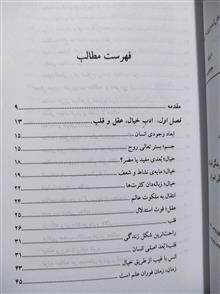 فهرست مطالب
مقدمه ۹
فصل اول، ادب خیال، عقل و قلب ۱۳
ابعاد وجودی انسان ۱۵
جسم؛ بستر تعالی روح ۱۵
خیال؛ بُعدی مفید یا مضر؟ ۱۸
خیال؛ مایه‌ی نشاط و شعف ۲۲
خیال؛ زباله‌دان کثرت‌ها ۲۴
انتقال به ملکوت عالم ۲۵
عقل؛ قوت استدلال
قلب
راحت‌ترین شکل زندگی ۳۱
قلب؛ بُعد اصلی انسان ۳۱
انس با قیب از طریق خیال ۴۳
زمان، زمان فوران علم است ۴۵